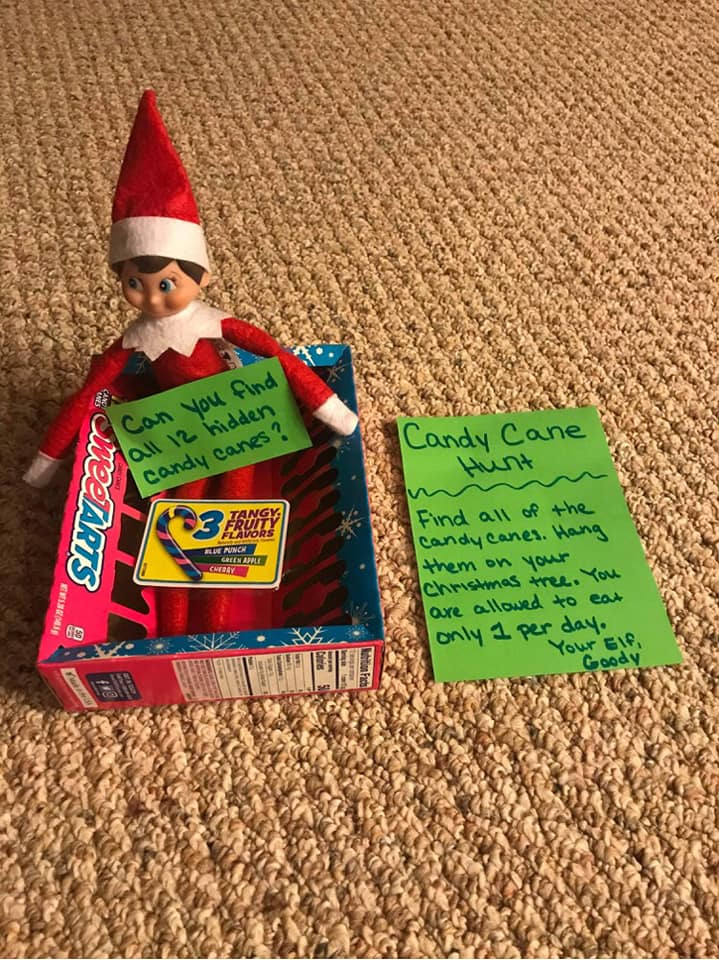 Can you find
all 12 hidden
candy canes?
SWEETARTS
3 TANGY,
FRUITY
FLAVORS
BLUE PUNCH
GREEN APPLE
CHERRY
Nutrition Facts
Calories
50
Candy Cane
Hunt
Find all of the
candy canes. Hang
them on your
christmas tree. You
are allowed to eat
only 1 per day.
Your Elf,
Goody